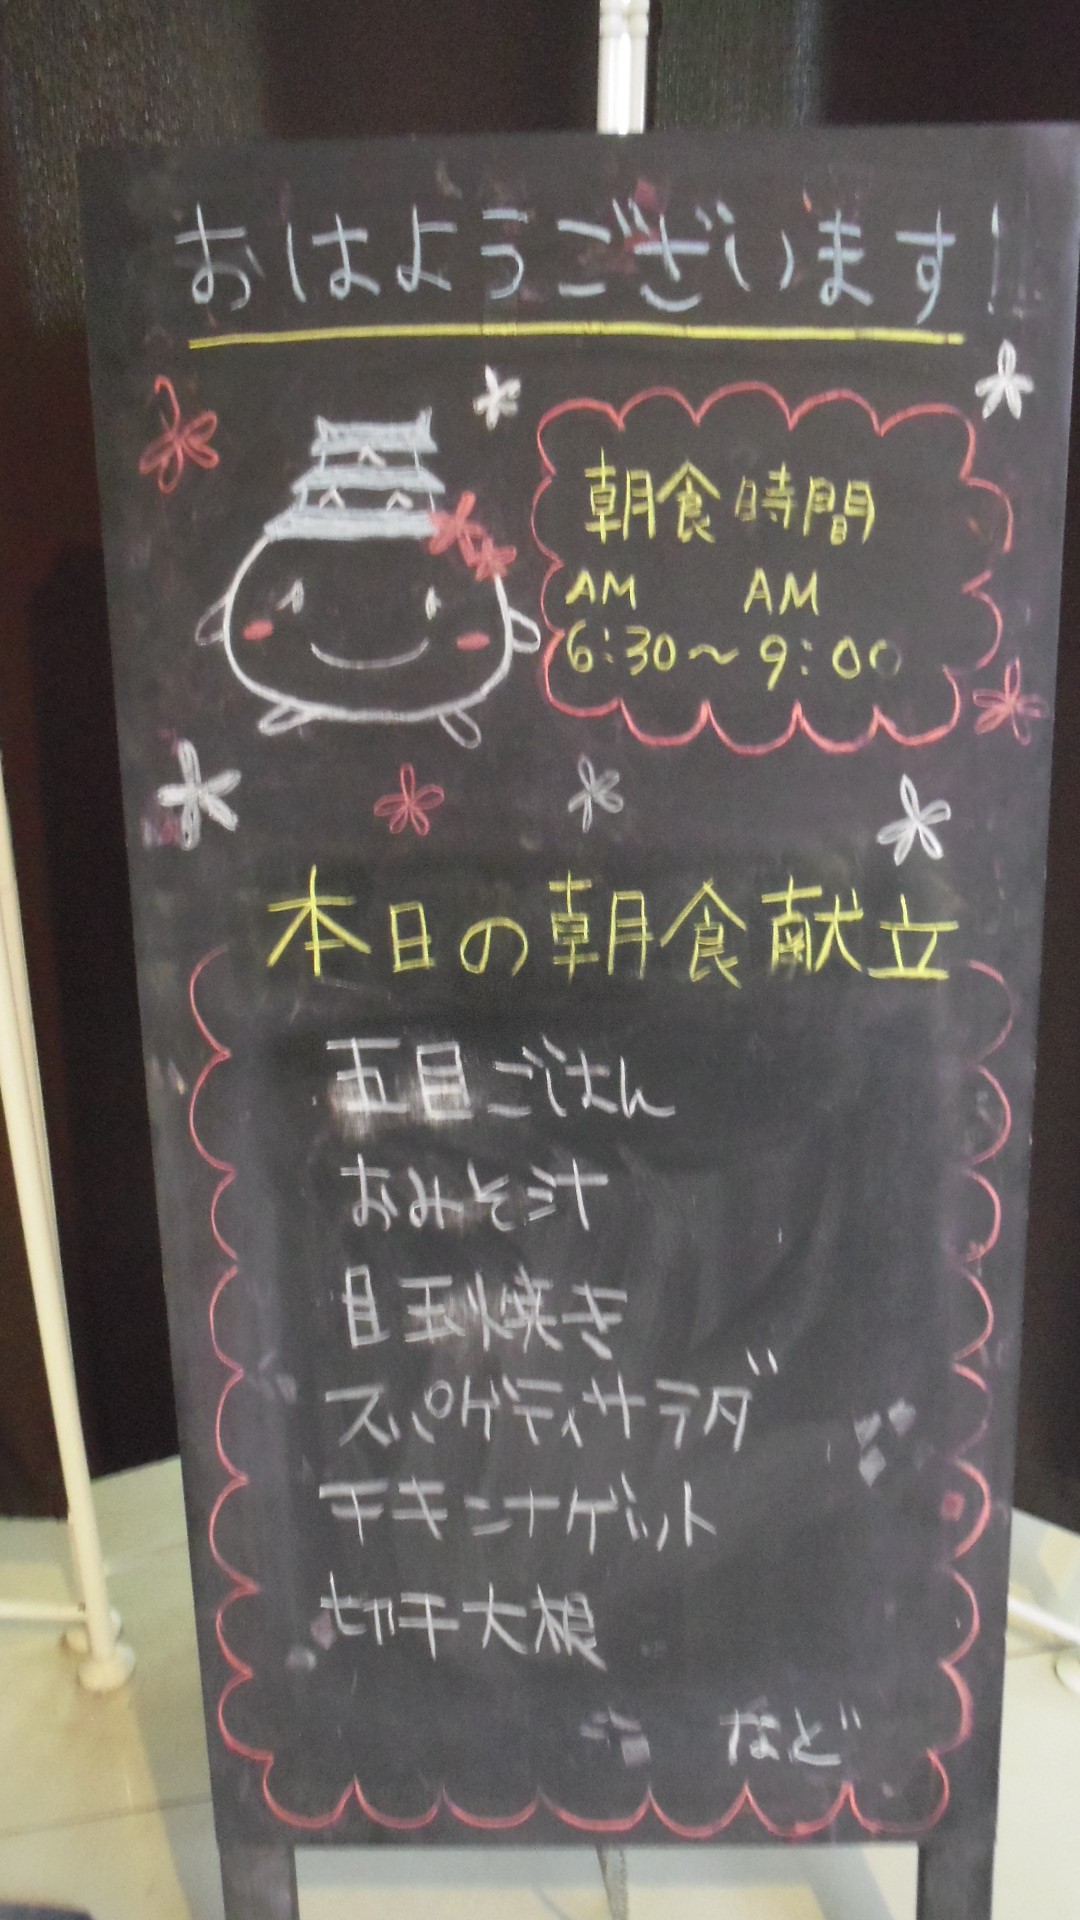 おはようございます!
朝食時間
AM AM
6:30〜9:00
本日の朝食献立
五目ごはん
おみそ汁
目玉焼き
スパゲティサラダ
チキンナゲット
切干大根
など